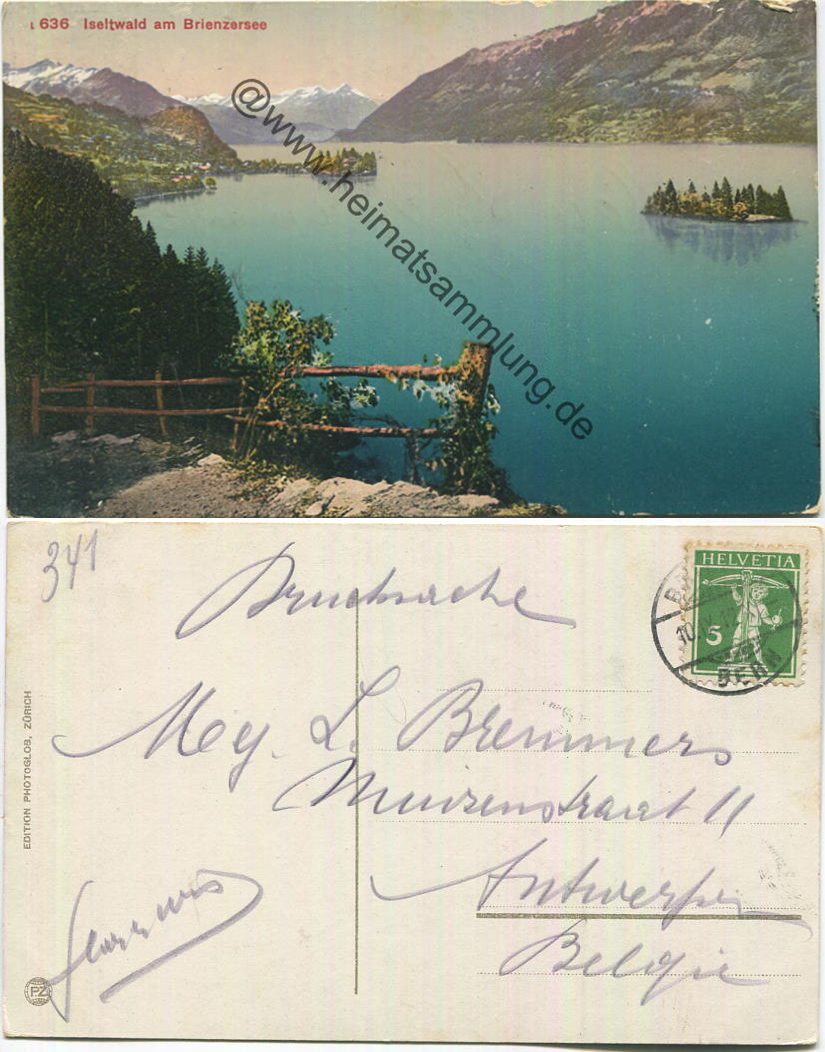 L 636 Iseltwald am Brienzersee
@www.heimatsammlung.de
341
Drucksache
HELVETIA
5
BERN
Mej. L. Bremmers
Muizenstraat 11
Antwerpen
België
EDITION PHOTOGLOB, ZÜRICH
PZ